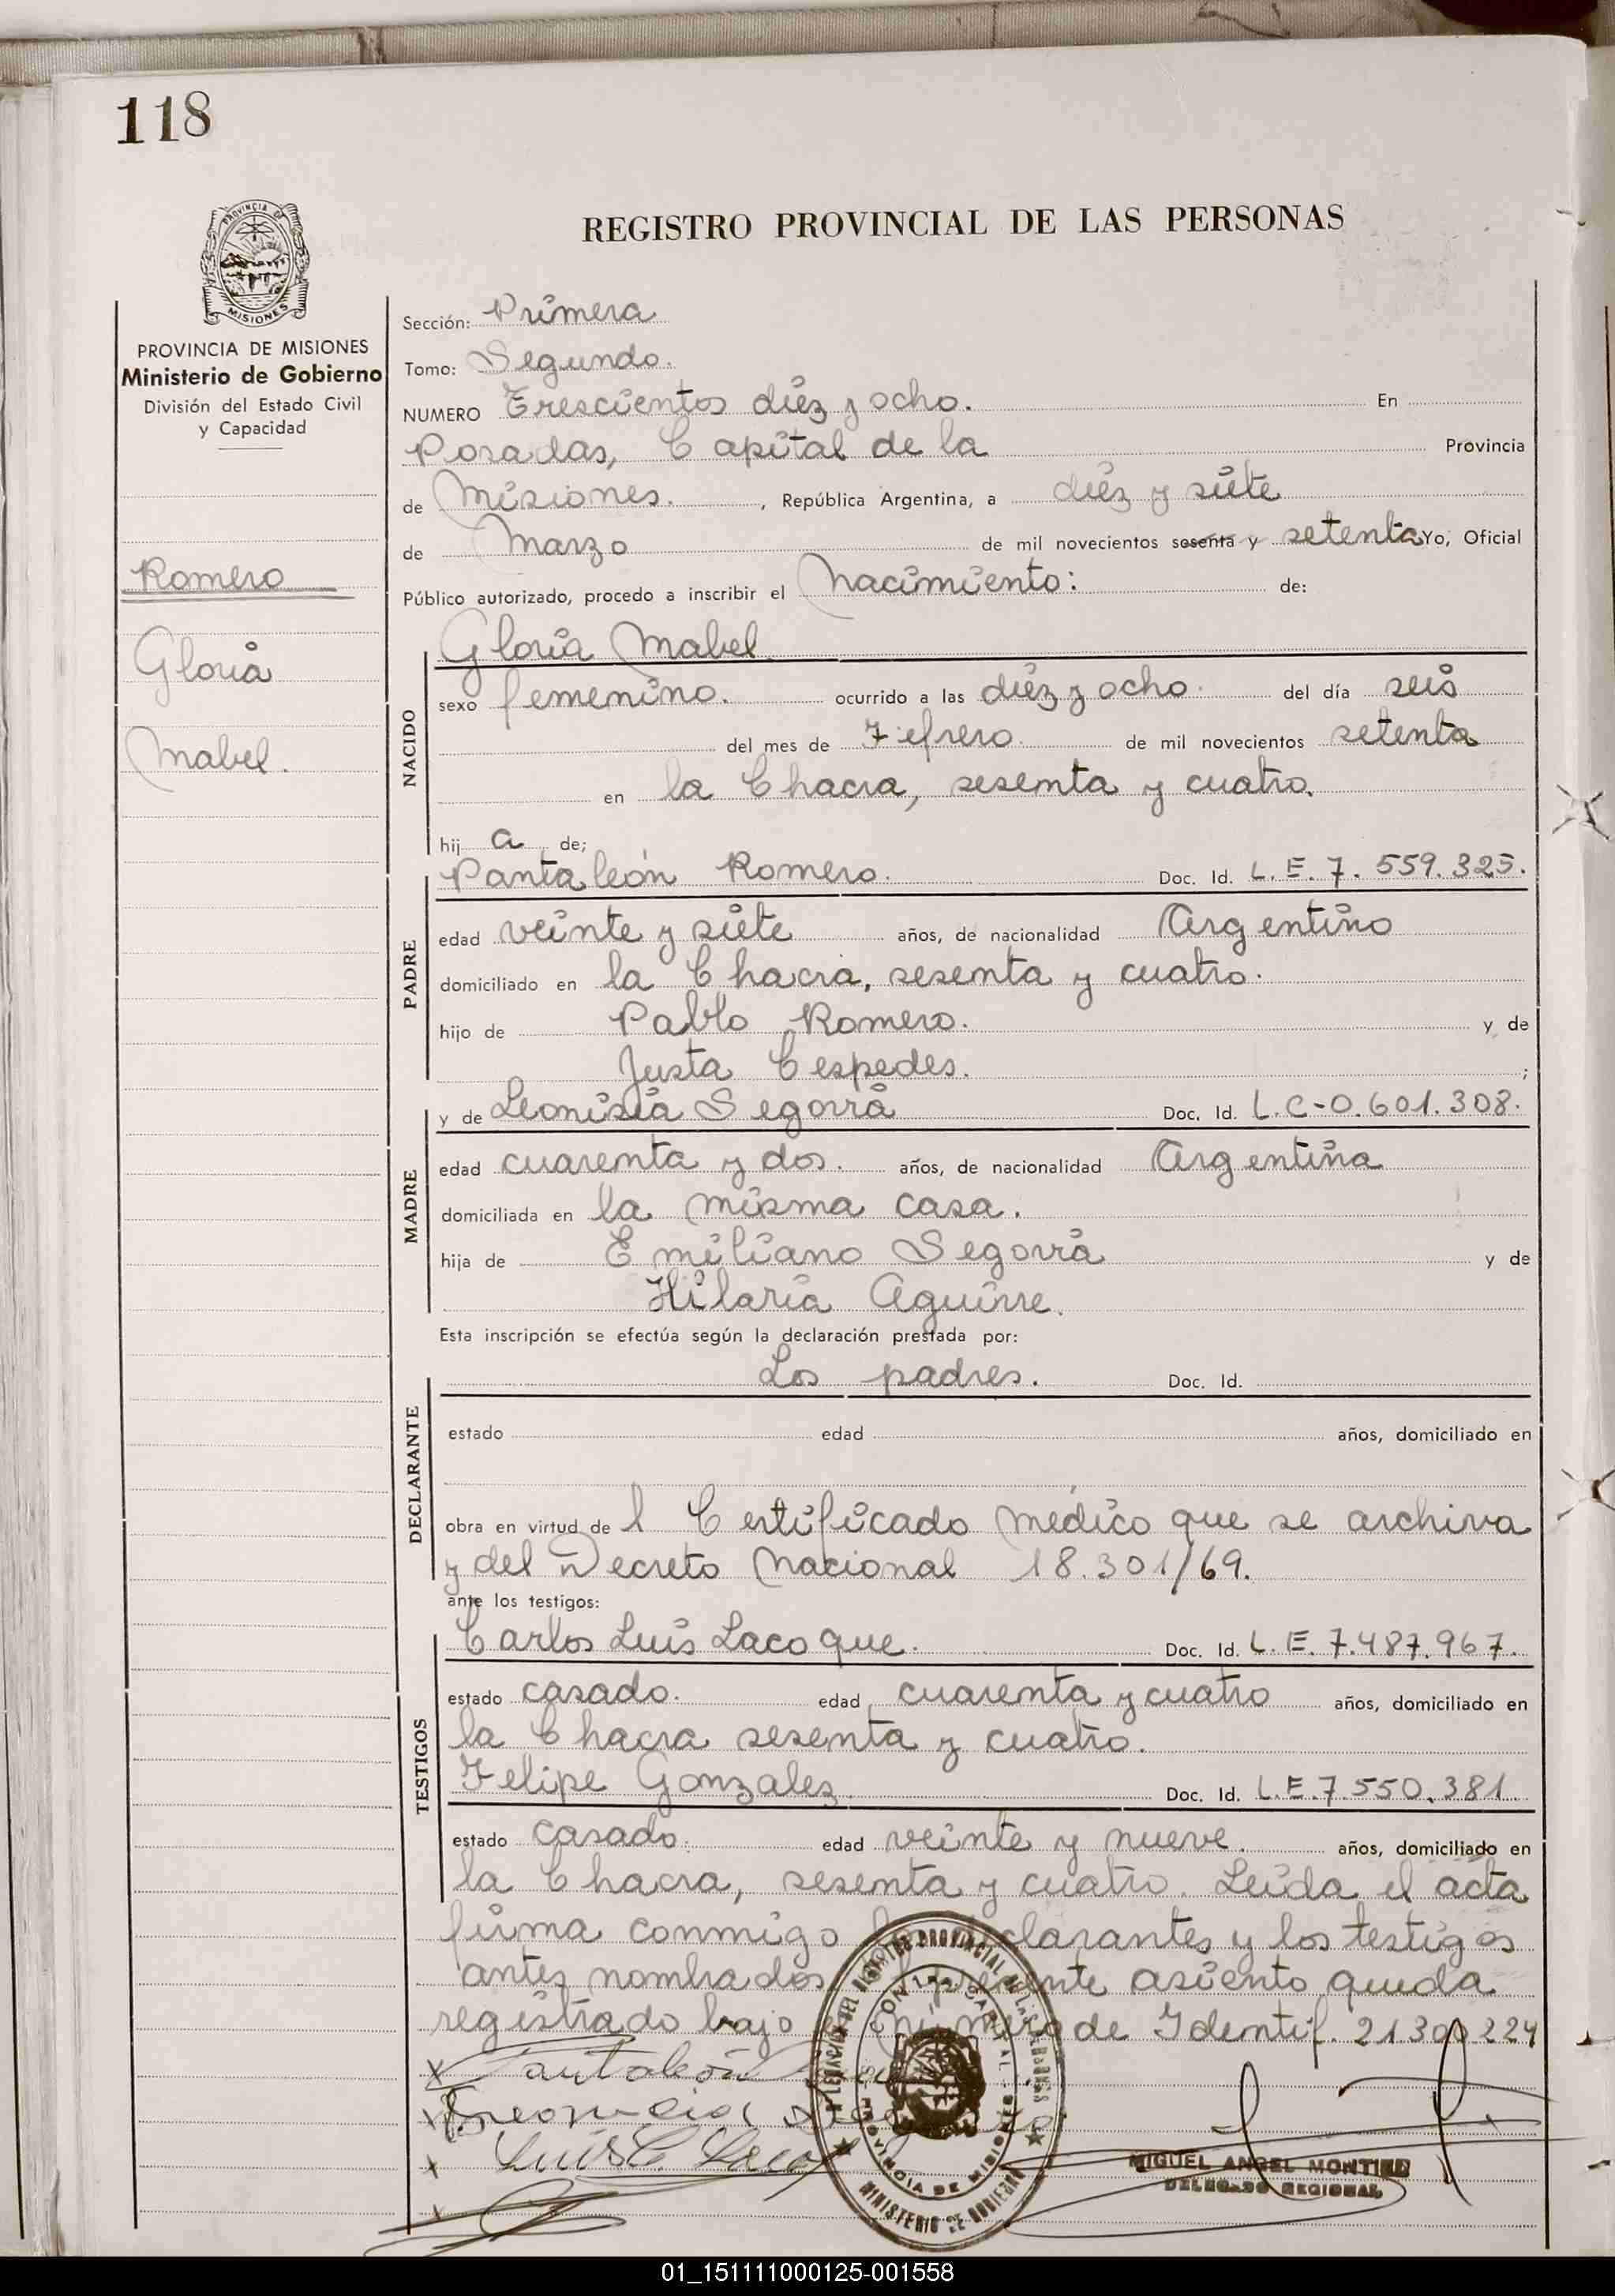 118
PROVINCIA DE
MISIONES
PROVINCIA DE MISIONES
Ministerio de Gobierno
División del Estado Civil
y Capacidad
Romero
Gloria
Mabel.
REGISTRO PROVINCIAL DE LAS PERSONAS
Sección: Primera
Tomo: Segundo.
NUMERO Trescientos diez y ocho. En
Posadas, Capital de la Provincia
de Misiones. , República Argentina, a diez y siete
de Marzo de mil novecientos sesenta y setenta Yo, Oficial
Público autorizado, procedo a inscribir el Nacimiento: de:
NACIDO
Gloria Mabel
sexo femenino. ocurrido a las diez y ocho. del día seis
del mes de Febrero. de mil novecientos setenta
en la Chacra, sesenta y cuatro.
hij a de;
PADRE
Pantaleón Romero. Doc. Id. L.E. 7.559.325.
edad veinte y siete años, de nacionalidad Argentino
domiciliado en la Chacra, sesenta y cuatro.
hijo de Pablo Romero. y de
Justa Cespedes. ;
MADRE
y de Leonisia Segovia Doc. Id. L.C-0.601.308.
edad cuarenta y dos. años, de nacionalidad Argentina
domiciliada en la misma casa.
hija de Emiliano Segovia y de
Hilaria Aguirre.
Esta inscripción se efectúa según la declaración prestada por:
DECLARANTE
Los padres. Doc. Id.
estado edad años, domiciliado en
obra en virtud de l Certificado Médico que se archiva
y del Decreto Nacional 18.301/69.
ante los testigos:
TESTIGOS
Carlos Luis Lacoque. Doc. Id. L.E. 7.487.967.
estado casado. edad cuarenta y cuatro años, domiciliado en
la Chacra sesenta y cuatro.
Felipe Gonzalez. Doc. Id. L.E.7.550.381.
estado casado. edad veinte y nueve. años, domiciliado en
la Chacra, sesenta y cuatro. Leida el acta
firma conmigo clarantes y los testigos
antes nombrados. presente asiento queda
registrado bajo número de Identif. 21.300.224
x Pantaleón
x
x Luis C. Laco
x
MIGUEL ANGEL MONTIEL
DELEGADO REGIONAL
DELEGACION DEL REGISTRO PROVINCIAL DE LAS PERSONAS
CAPITAL
PROVINCIA DE MISIONES
MINISTERIO DE GOBIERNO
01_151111000125-001558